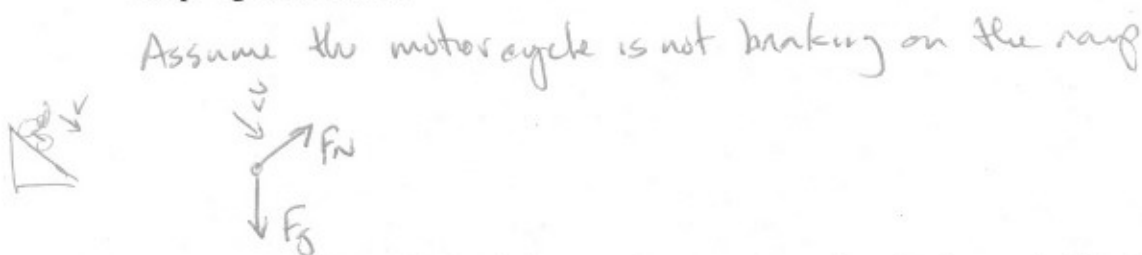 Assume the motorcycle is not braking on the ramp
F_N
F_g